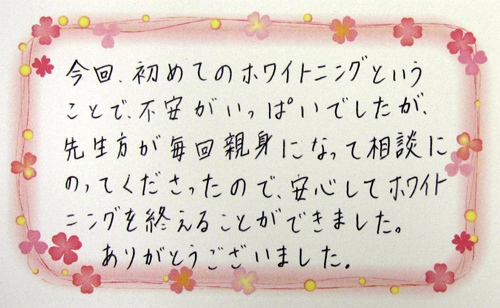 今回、初めてのホワイトニングという
ことで、不安がいっぱいでしたが、
先生方が毎回親身になって相談に
のってくださったので、安心してホワイト
ニングを終えることができました。
ありがとうございました。